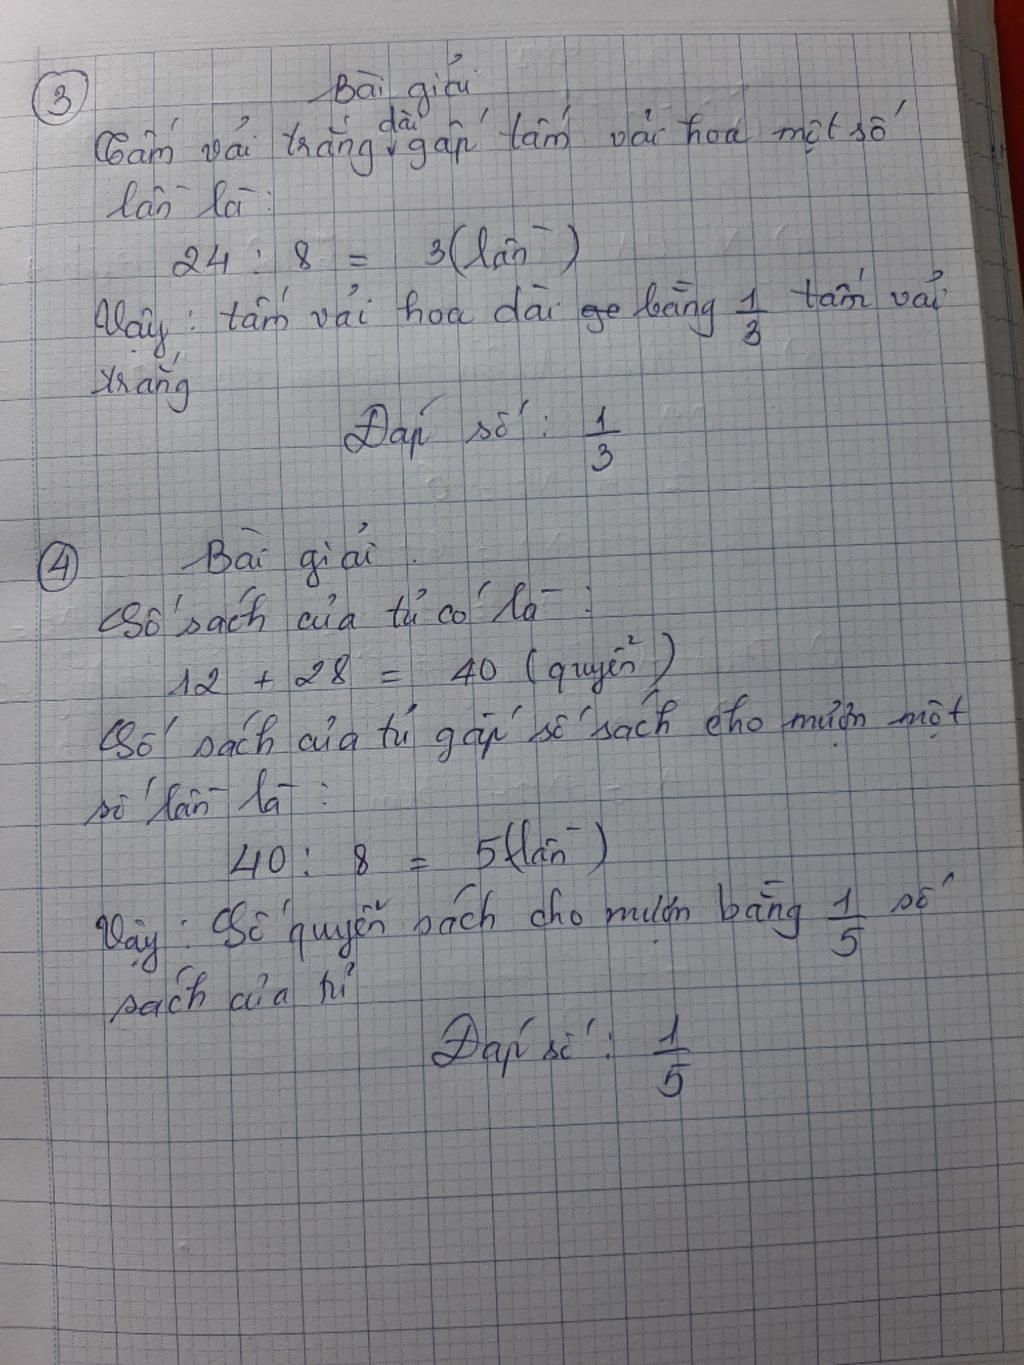 3 Bài giải
Tấm vải trắng dài gấp tấm vải hoa một số
lần là:
24 : 8 = 3 (lần)
Vậy: tấm vải hoa dài bằng 1/3 tấm vải
trắng
Đáp số: 1/3
4 Bài giải.
Số sách của tủ có là:
12 + 28 = 40 (quyển)
Số sách của tủ gấp số sách cho mượn một
số lần là:
40 : 8 = 5 (lần)
Vậy: Số quyển sách cho mượn bằng 1/5 số
sách của tủ
Đáp số: 1/5